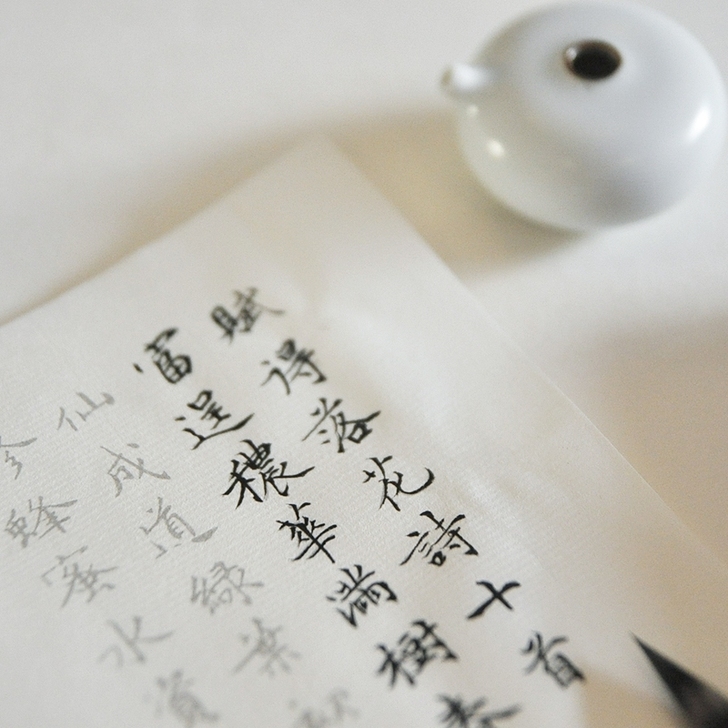 賦得落花詩十首
富逞穠華滿樹春
仙成道綠葉
蜂蜜水資